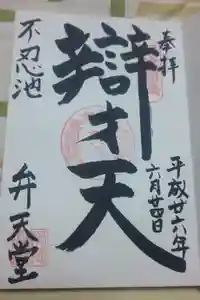 奉拝
平成廿六年
六月廿四日
辯才天
不忍池
弁天堂